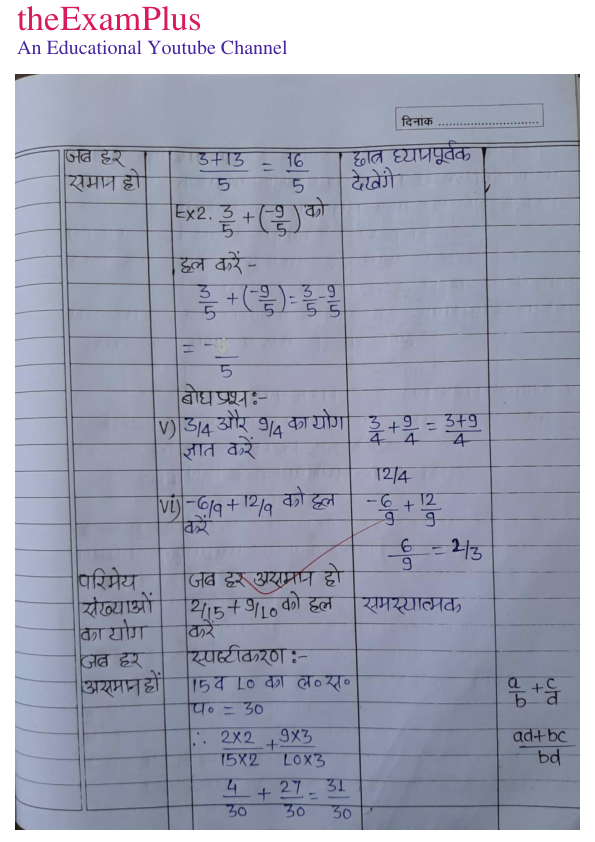 theExamPlus
An Educational Youtube Channel
दिनांक ............................
जब हर
समान हो
3+13/5 = 16/5
छात्र ध्यानपूर्वक
देखेंगे
Ex2. 3/5 + (-9/5) को
हल करें -
3/5 + (-9/5) = 3/5 - 9/5
= - /5
बोध प्रश्न :-
v) 3/4 और 9/4 का योग
ज्ञात करें
3/4 + 9/4 = 3+9/4
12/4
vi) -6/9 + 12/9 को हल
करें
-6/9 + 12/9
6/9 = 2/3
परिमेय
संख्याओं
का योग
जब हर
असमान हों
जब हर असमान हो
2/15 + 9/10 को हल
करें
समस्यात्मक
स्पष्टीकरण :-
15 व 10 का ल० स०
प० = 30
∴ 2×2/15×2 + 9×3/10×3
4/30 + 27/30 = 31/30
a/b + c/d
ad+bc/bd